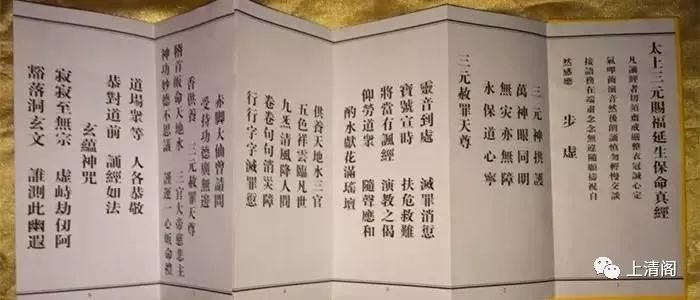 太上三元賜福延生保命真經
凡誦經者切須齋戒嚴整衣冠誠心定
氣叩齒演音然後朗誦慎勿輕慢交談
接語務在端肅念念無違隨願禱祝自
然感應 步虛
三元神拱護
萬神眼同明
無灾亦無障
永保道心寧
三元赦罪天尊
靈音到處 滅罪消愆
寶號宣時 扶危救難
將當有諷經 演教之偈
仰勞道衆 隨聲應和
酌水獻花滿瑤壇
供養天地水三官
五色祥雲臨凡世
九炁清風降人間
卷卷句句消災障
行行字字滅罪愆
赤腳大仙會請問
受持功德廣無邊
香供養 三元赦罪天尊
稽首皈命天地水 三官大帝慈悲主
神功妙德不思議 護運一心皈命禮
道場衆等 人各恭敬
恭對道前 誦經如法
玄蘊神咒
寂寂至無宗 虛峙劫仞阿
豁落洞玄文 誰測此幽遐
上清阁